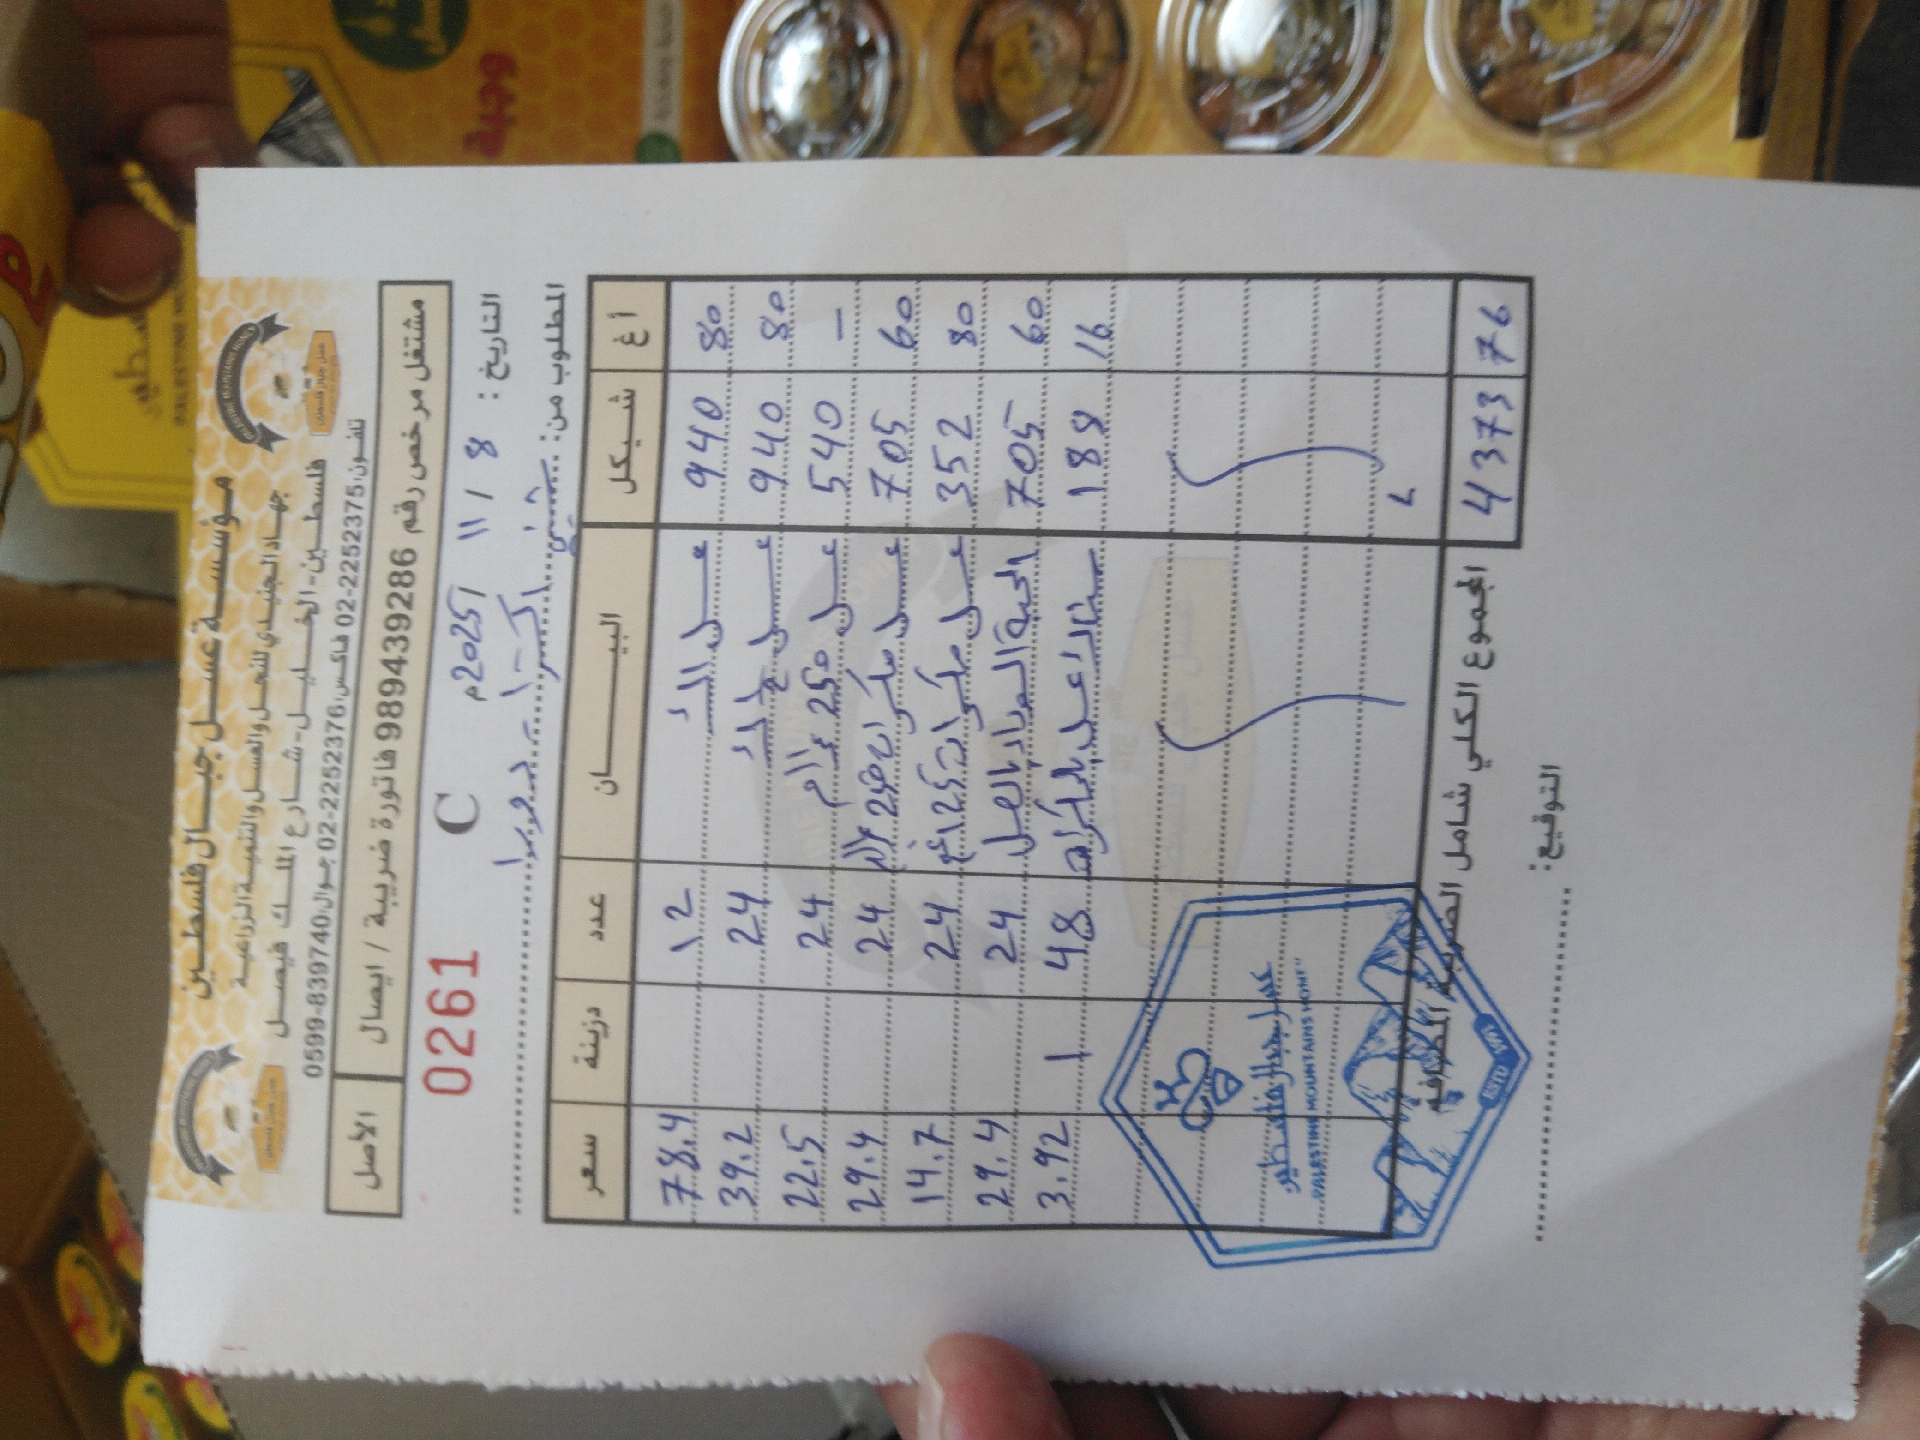 مؤسسة عسل جبال فلسطين
جهاد الجنيدي للنحل والعسل والتنمية الزراعية
فلسطين - الخليل - شارع الملك فيصل
تلفون: 02-2252375 فاكس: 02-2252376 جوال: 0599-839740
مشتغل مرخص رقم 989439286 فاتورة ضريبية / ايصال
الأصل
التاريخ : 8 / 11 / 2025م
C
0261
المطلوب من:
أغ شيكل البيــــان عدد دزينة سعر
80 940 عسل 12 78.4
80 940 عسل 24 39.2
— 540 عسل 250 غرام 24 22.5
60 705 عسل مكسرات 250 24 29.4
80 352 عسل مكسرات 125 غم 24 14.7
60 705 24 29.4
16 188 48 1 3.92
76 4373 المجموع الكلي شامل الضريبة المضافة
التوقيع:
PALESTINE MOUNTAINS HONEY
وجبة